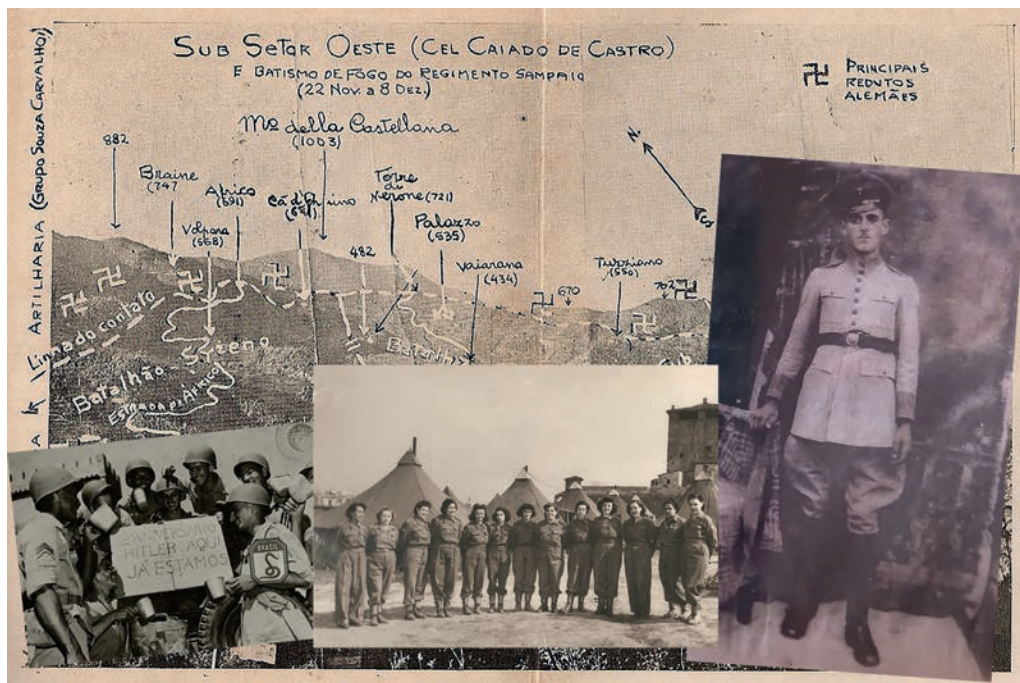 SUB SETOR OESTE (CEL CAIADO DE CASTRO)
E BATISMO DE FOGO DO REGIMENTO SAMPAIO
(22 Nov. a 8 DEZ.)
PRINCIPAIS
REDUTOS
ALEMÃES
ARTILHARIA (GRUPO SOUZA CARVALHO)
Mº della Castellana
(1003)
882
Braine
(747
Africo
(691)
Volpara
(568)
Torre
di
Nerone (721)
Palazzo
(535)
482
Vaiarana
(434)
670
(550)
702
N
S
Linha do contato
Batalhão
Syzeno
ESTRADA DE AFRICO
HITLER AQUI
JÁ ESTAMOS
BRASIL